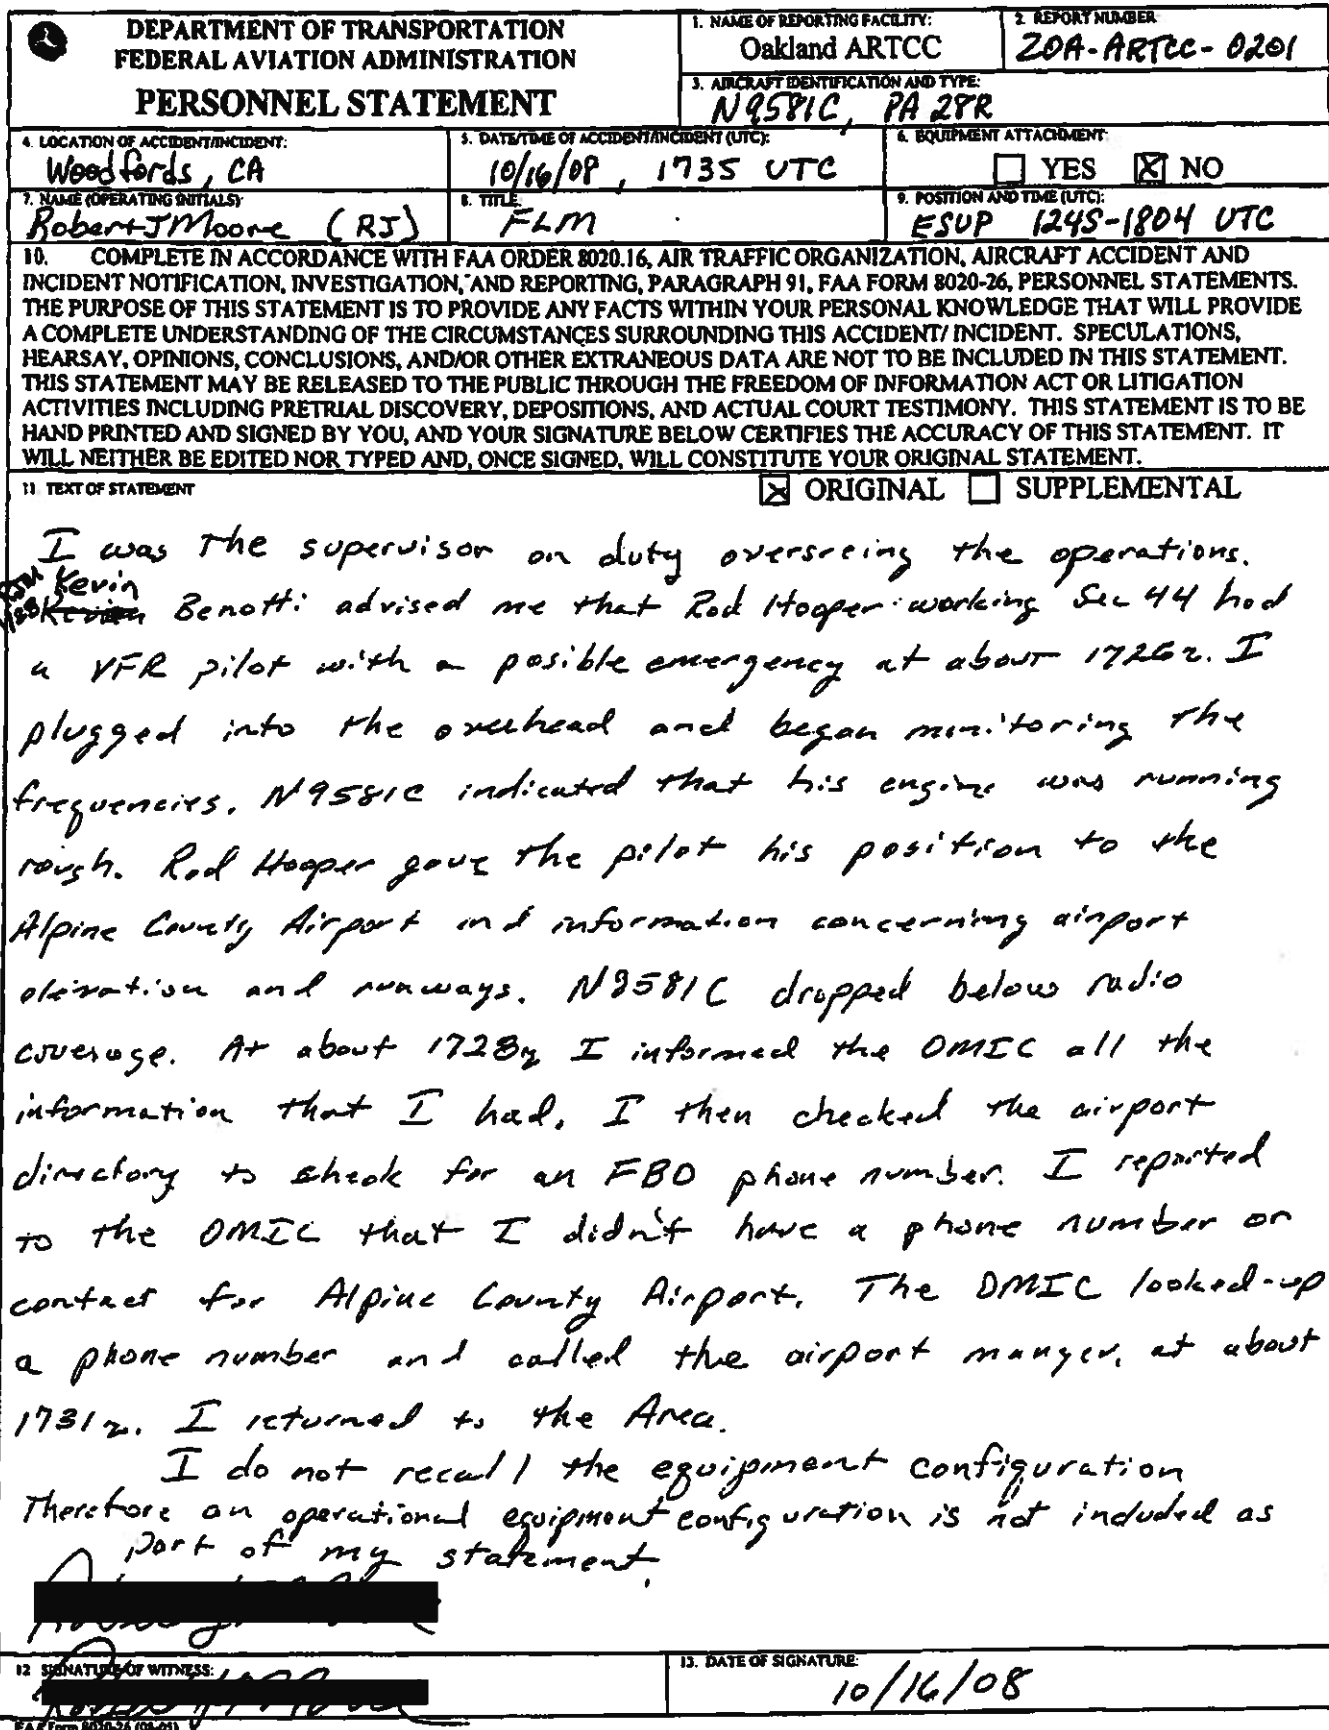 DEPARTMENT OF TRANSPORTATION
FEDERAL AVIATION ADMINISTRATION
PERSONNEL STATEMENT
1. NAME OF REPORTING FACILITY:
Oakland ARTCC
2. REPORT NUMBER
ZOA-ARTCC-0201
3. AIRCRAFT IDENTIFICATION AND TYPE:
N9581C, PA 28R
4. LOCATION OF ACCIDENT/INCIDENT:
Woodfords, CA
5. DATE/TIME OF ACCIDENT/INCIDENT (UTC):
10/16/08, 1735 UTC
6. EQUIPMENT ATTACHMENT:
YES NO
7. NAME (OPERATING INITIALS)
Robert J Moore (RJ)
8. TITLE:
FLM
9. POSITION AND TIME (UTC):
ESUP 1245-1804 UTC
10. COMPLETE IN ACCORDANCE WITH FAA ORDER 8020.16, AIR TRAFFIC ORGANIZATION, AIRCRAFT ACCIDENT AND
INCIDENT NOTIFICATION, INVESTIGATION, AND REPORTING, PARAGRAPH 91, FAA FORM 8020-26, PERSONNEL STATEMENTS.
THE PURPOSE OF THIS STATEMENT IS TO PROVIDE ANY FACTS WITHIN YOUR PERSONAL KNOWLEDGE THAT WILL PROVIDE
A COMPLETE UNDERSTANDING OF THE CIRCUMSTANCES SURROUNDING THIS ACCIDENT/ INCIDENT. SPECULATIONS,
HEARSAY, OPINIONS, CONCLUSIONS, AND/OR OTHER EXTRANEOUS DATA ARE NOT TO BE INCLUDED IN THIS STATEMENT.
THIS STATEMENT MAY BE RELEASED TO THE PUBLIC THROUGH THE FREEDOM OF INFORMATION ACT OR LITIGATION
ACTIVITIES INCLUDING PRETRIAL DISCOVERY, DEPOSITIONS, AND ACTUAL COURT TESTIMONY. THIS STATEMENT IS TO BE
HAND PRINTED AND SIGNED BY YOU, AND YOUR SIGNATURE BELOW CERTIFIES THE ACCURACY OF THIS STATEMENT. IT
WILL NEITHER BE EDITED NOR TYPED AND, ONCE SIGNED, WILL CONSTITUTE YOUR ORIGINAL STATEMENT.
11 TEXT OF STATEMENT
ORIGINAL SUPPLEMENTAL
I was the supervisor on duty overseeing the operations.
Kevin
Benotti advised me that Rod Hooper working Sec 44 had
a VFR pilot with a posible emergency at about 1726z. I
plugged into the overhead and began monitoring the
frequencies. N9581C indicated that his engine was running
rough. Rod Hooper gave the pilot his position to the
Alpine County Airport and information concerning airport
elevation and runways. N9581C dropped below radio
coverage. At about 1728z I informed the OMIC all the
information that I had. I then checked the airport
directory to check for an FBO phone number. I reported
to the OMIC that I didn't have a phone number or
contact for Alpine County Airport. The OMIC looked-up
a phone number and called the airport manger, at about
1731z. I returned to the Area.
I do not recall the equipment configuration
Therefore an operational equipment configuration is not included as
part of my statement.
12 SIGNATURE OF WITNESS:
13. DATE OF SIGNATURE:
10/16/08
FAA Form 8020-26 (08-05)